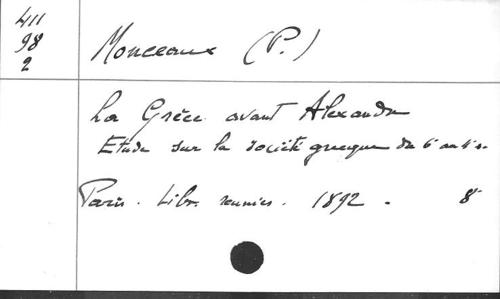 411
98
2
Monceaux (P.)
La Grèce avant Alexandre
Etude sur la société grecque du 6e au 4e s.
Paris. Libr. réunies. 1892. 8°